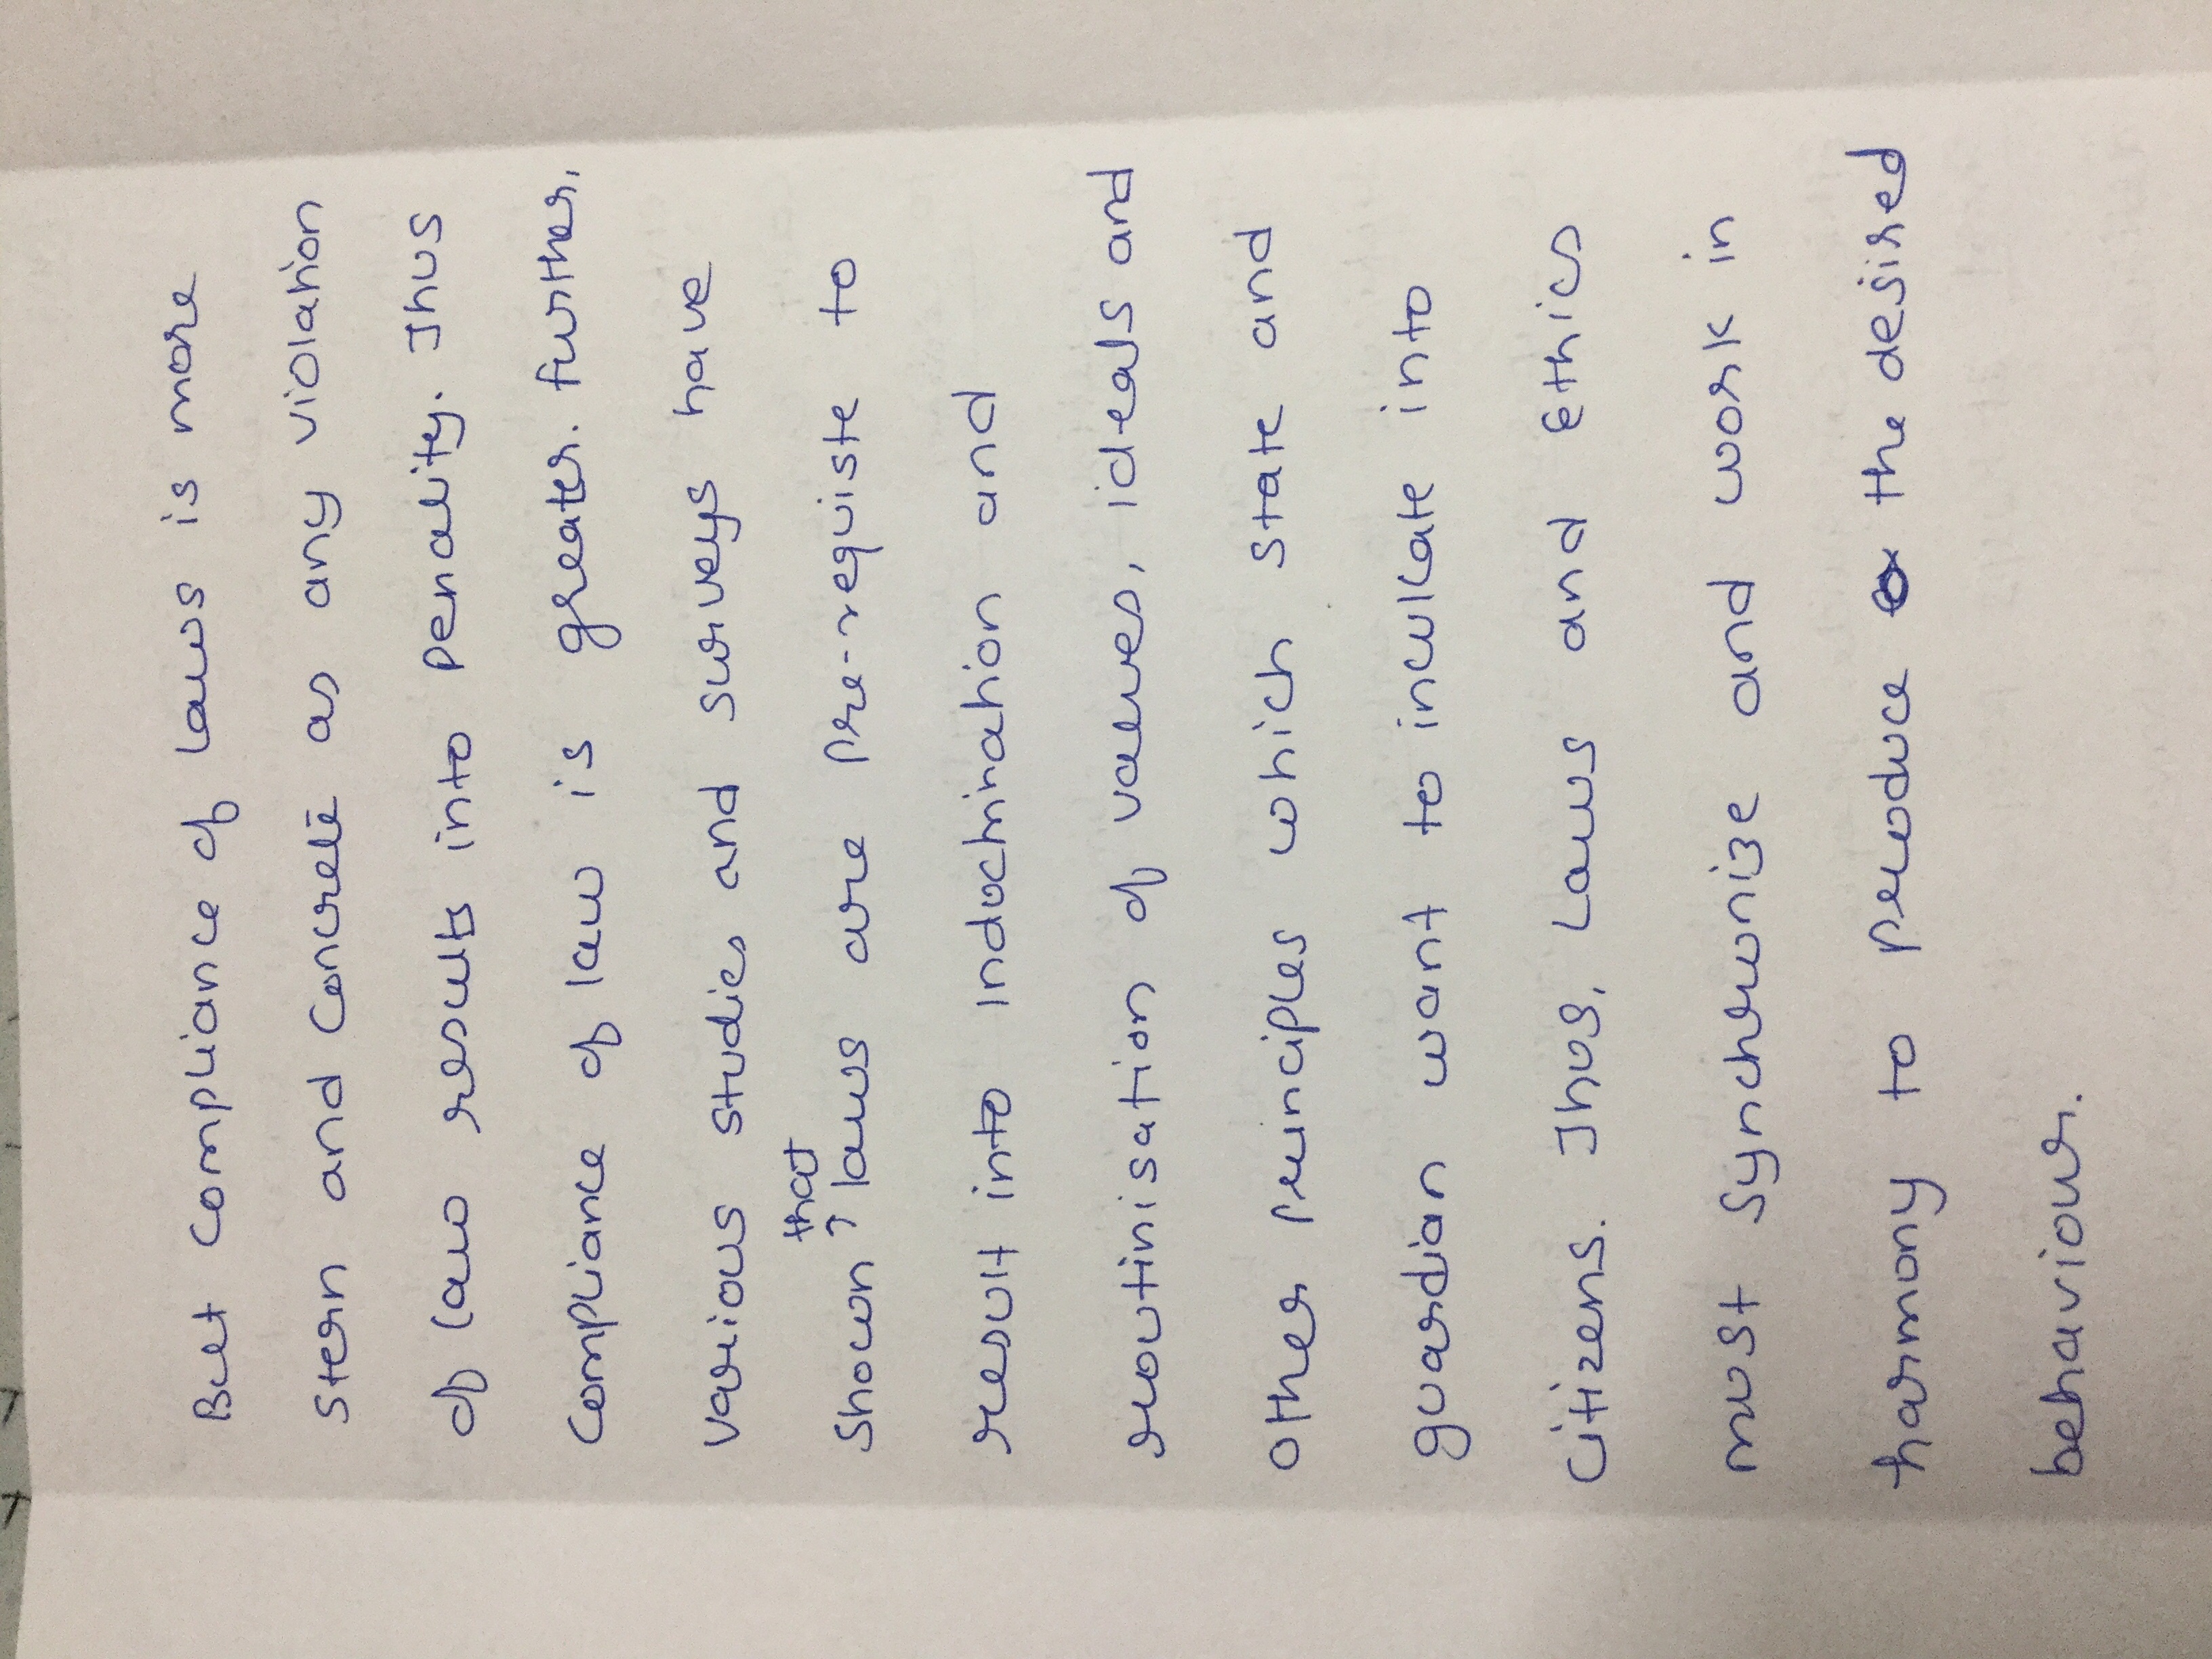 But compliance of laws is more
stern and concrete as any violation
of law results into penality. Thus
compliance of law is greater. further,
various studies and surveys have
shown that laws are pre-requiste to
result into indoctrination and
routinisation of values, ideals and
other principles which state and
guardian want to inculcate into
citizens. Thus, Laws and Ethics
must synchronize and work in
harmony to produce the desired
behaviour.